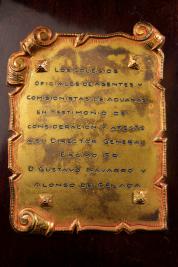 LOS COLEGIOS
OFICIALES DE AGENTES Y
COMISIONISTAS DE ADUANAS
EN TESTIMONIO DE
CONSIDERACIÓN Y AFECTO
AL DIRECTOR GENERAL
EXCMO SR
D. GUSTAVO NAVARRO Y
ALONSO DE CELADA